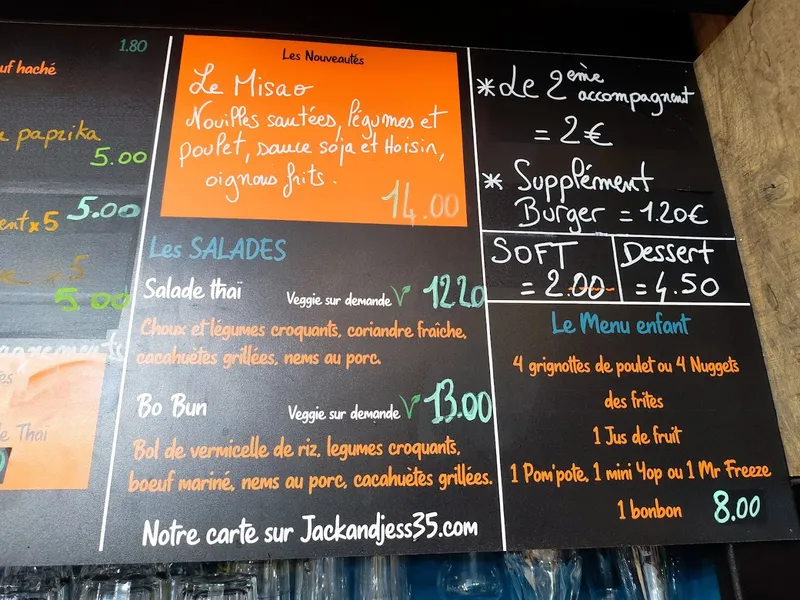 1.80
uf haché
paprika
5.00
ent x 5
5.00
x 5
5.00
Thaï
Les Nouveautés
Le Misao
Nouilles sautées, légumes et
poulet, sauce sója et Hoisin,
oignons frits.
14.00
Les SALADES
Salade thaï
Veggie sur demande
12.20
Choux et légumes croquants, coriandre fraîche,
cacahuètes grillées, nems au porc.
Bo Bun
Veggie sur demande
13.00
Bol de vermicelle de riz, legumes croquants,
boeuf mariné, nems au porc, cacahuètes grillées.
Notre carte sur Jackandjess35.com
* Le 2ème accompagnent
= 2€
* Supplément
Burger = 1.20€
SOFT
= 2.00
Dessert
= 4.50
Le Menu enfant
4 grignottes de poulet ou 4 Nuggets
des frites
1 Jus de fruit
1 Pom'pote, 1 mini Yop ou 1 Mr Freeze
1 bonbon
8.00